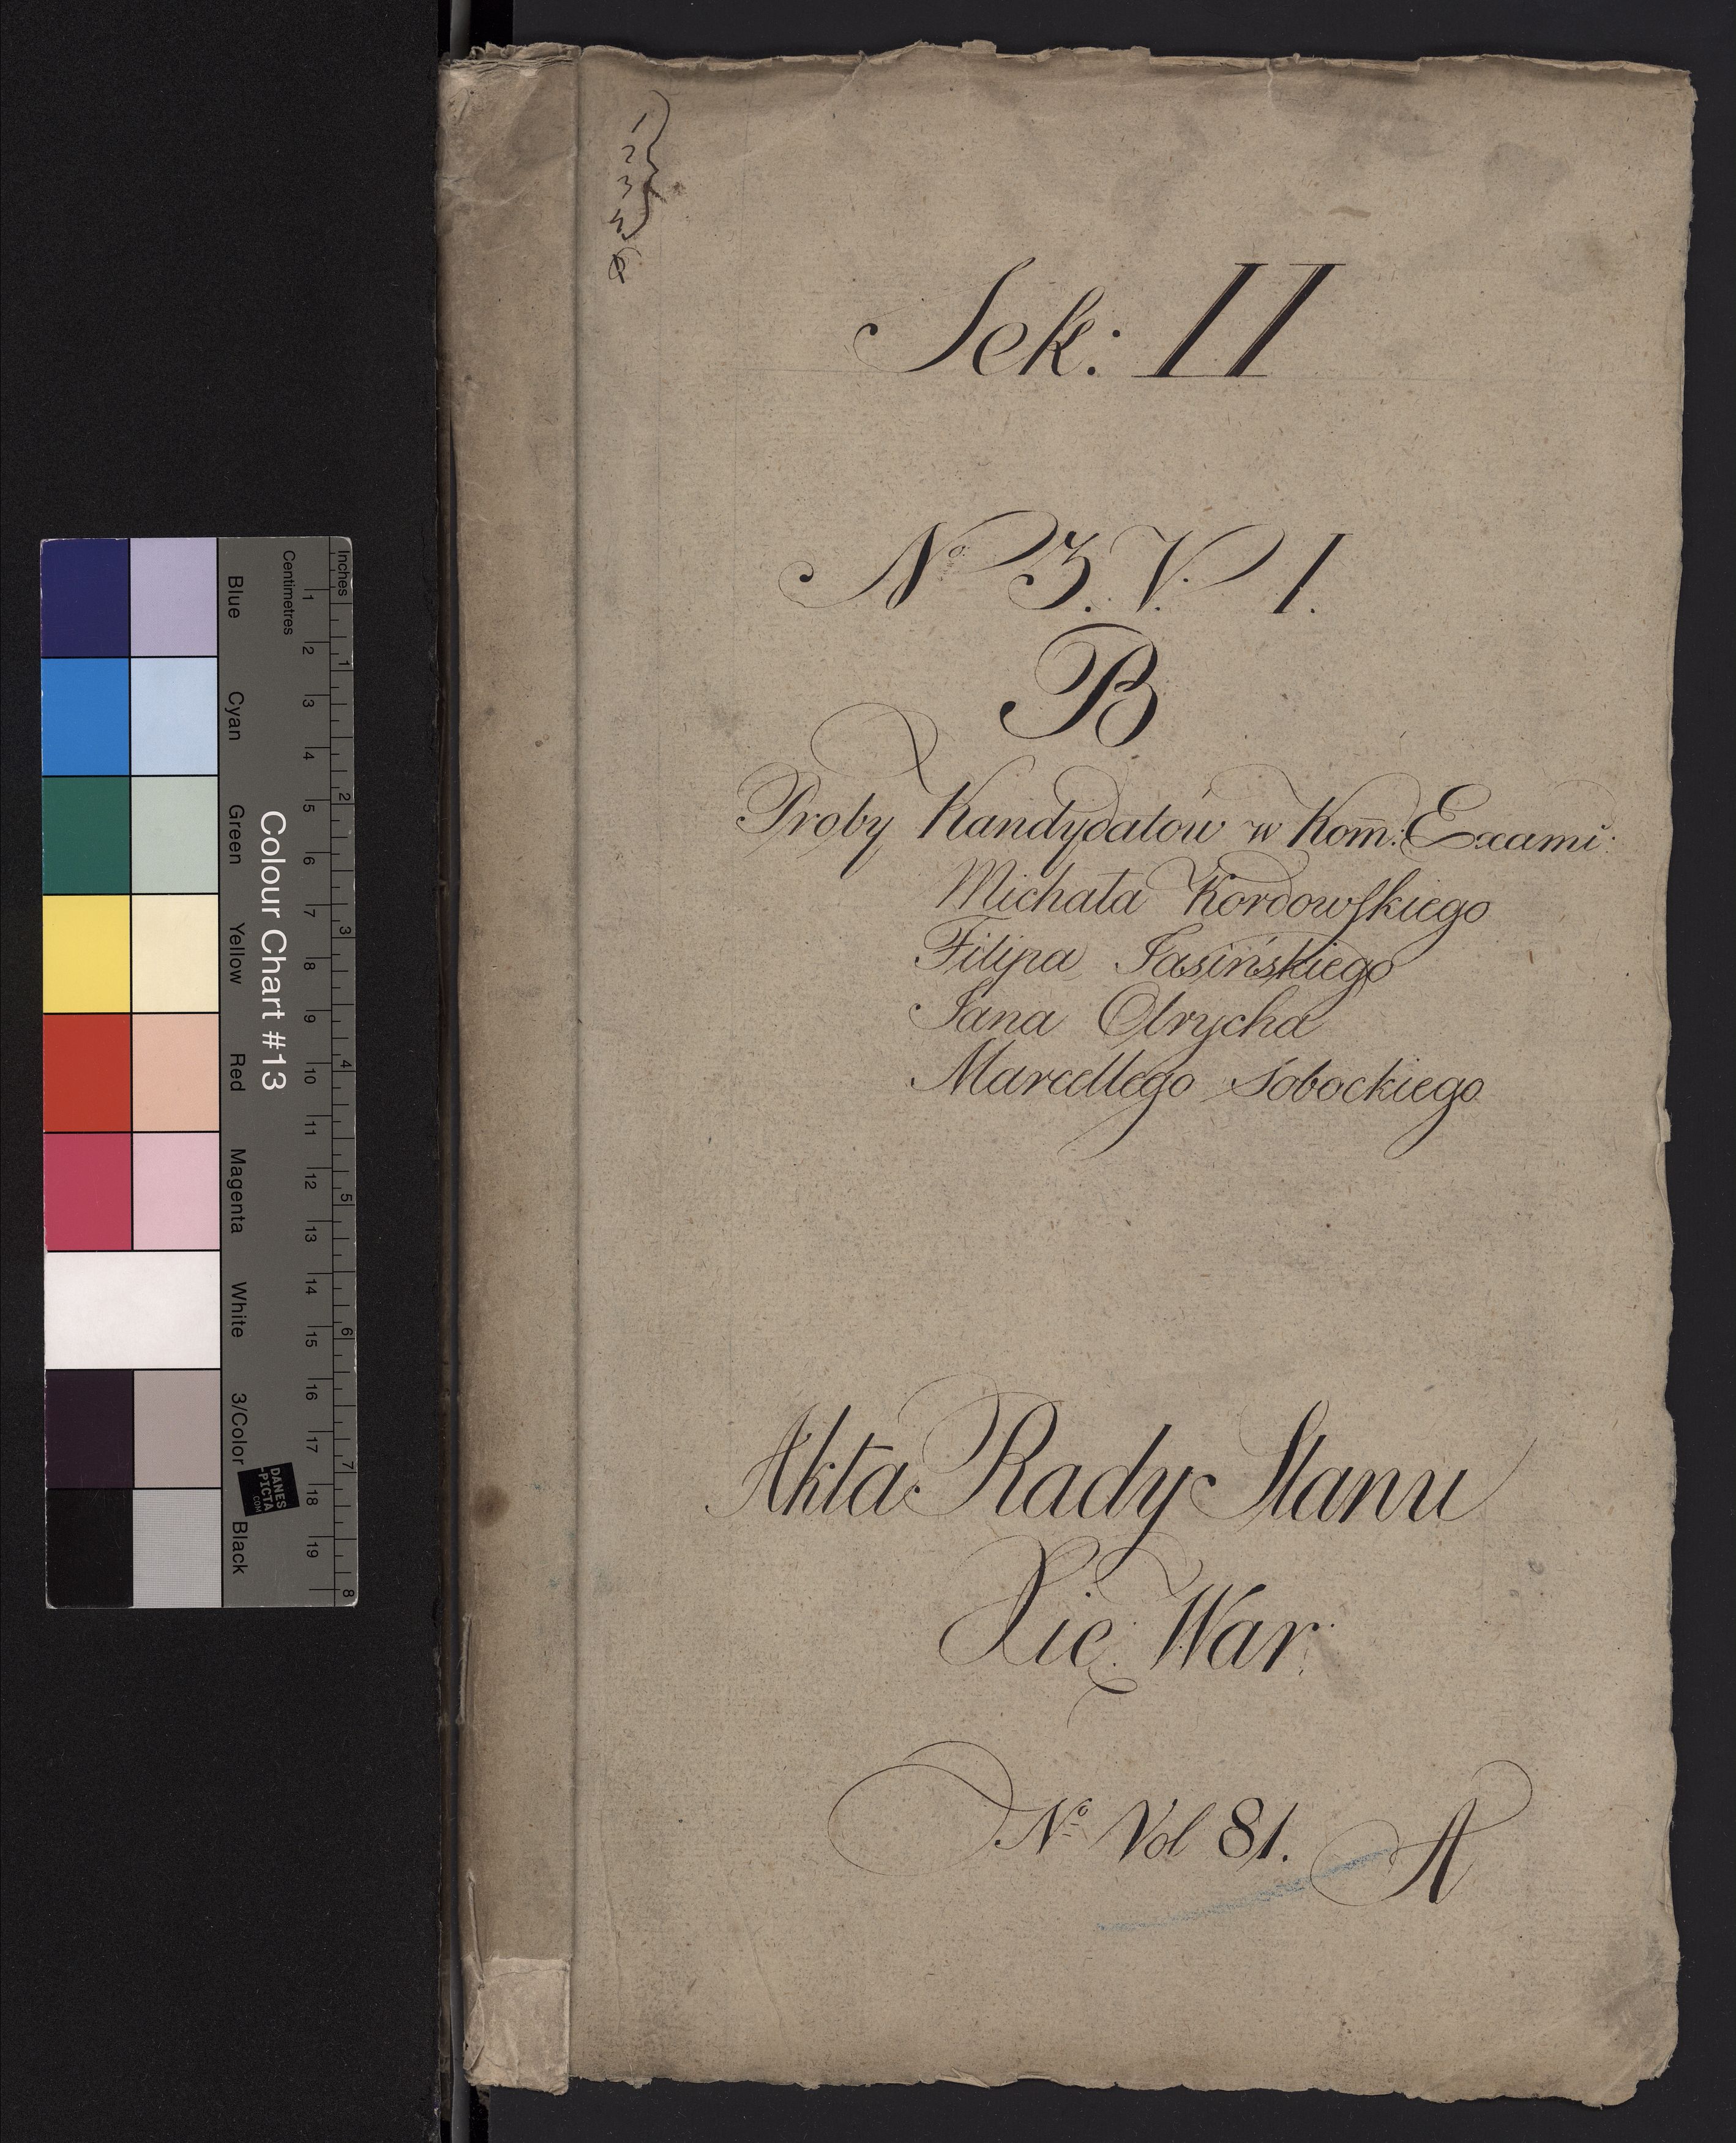 1
2
3
Sek: II
Nº 3. V. I.
B
Proby Kandydatów w Kom̄: Exami:
Michała Kordowſkiego
Filipa Jasińskiego
Jana Olrycha
Marcellego Sobockiego
Akta Rady Stanu
Xię: War:
Nº Vol 81. A
Colour Chart #13
Blue Cyan Green Yellow Red Magenta White 3/Color Black
Centimetres 1 2 3 4 5 6 7 8 9 10 11 12 13 14 15 16 17 18 19
Inches 1 2 3 4 5 6 7 8
DANES
-PICTA
.COM